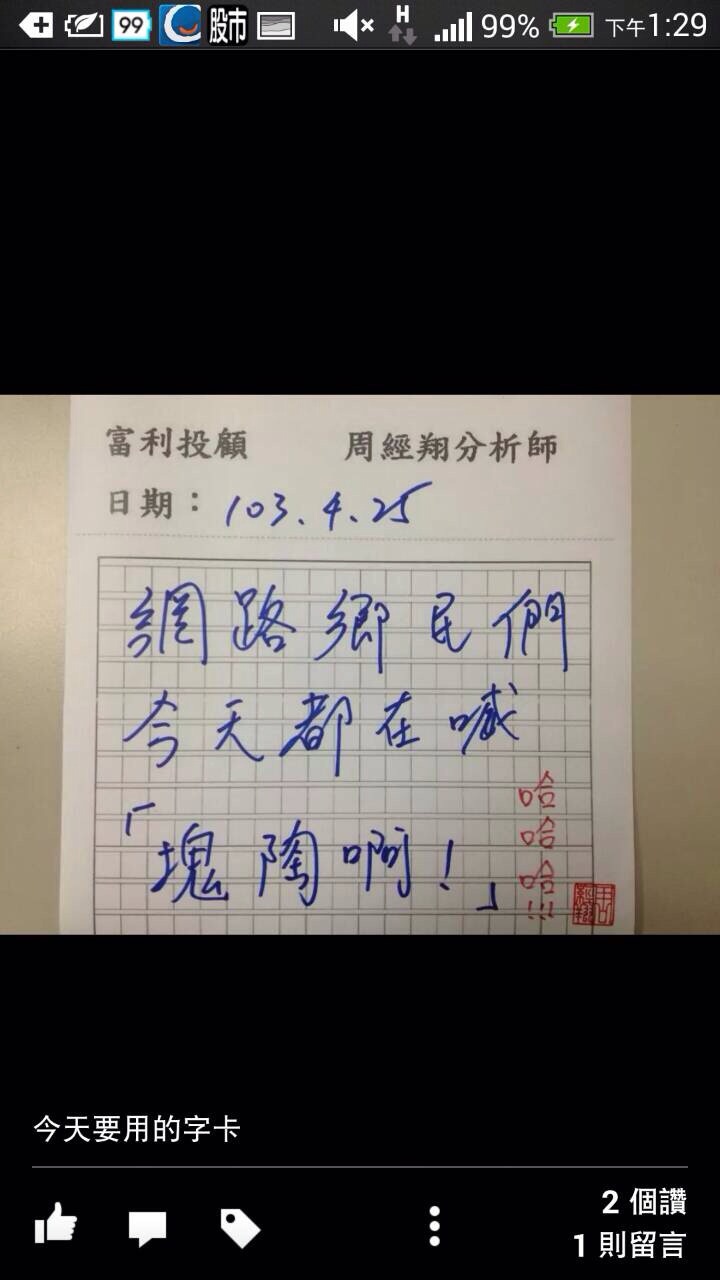 99
股市
H
99%
下午1:29
富利投顧 周經翔分析師
日期：103.4.25
網路鄉民們
今天都在喊
「塊陶啊！」
哈
哈
哈
!!!
今天要用的字卡
2 個讚
1 則留言